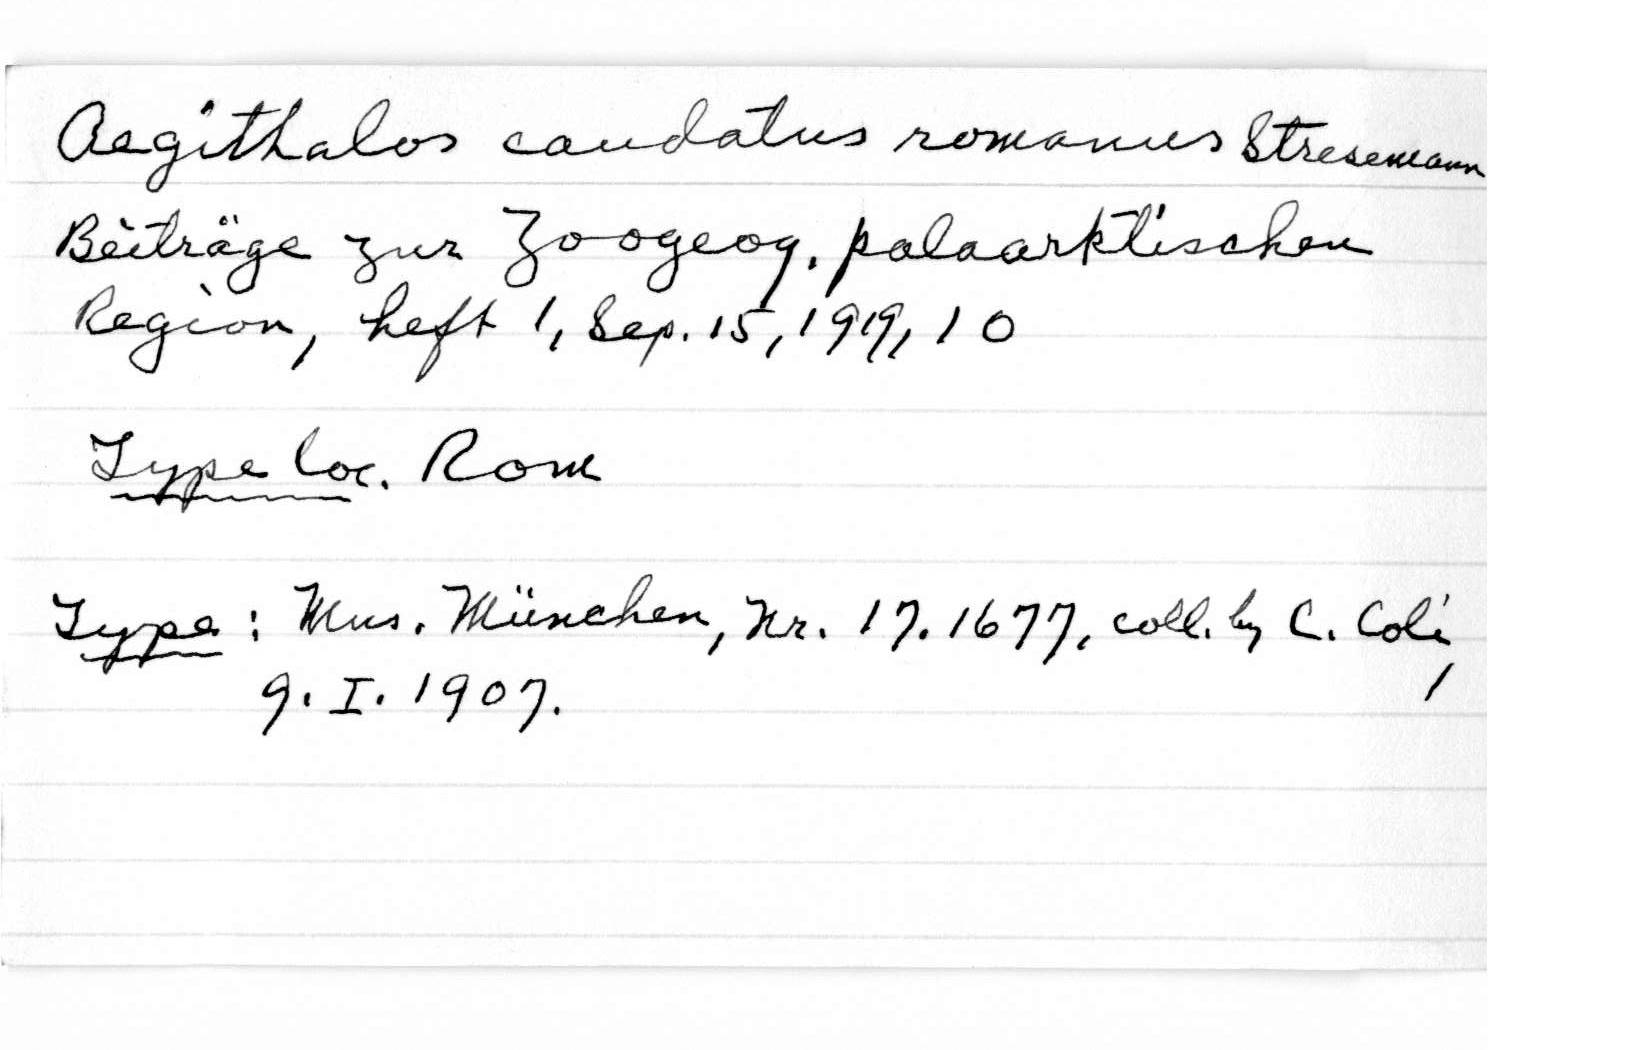 Aegithalos caudatus romanus Stresemann
Beiträge zur Zoogeog. palaarktischen
Region, heft 1, Sep. 15, 1919, 10
Type loc. Rom
Type: Mus. München, Nr. 17.1677, coll. by C. Coli,
9. I. 1907.